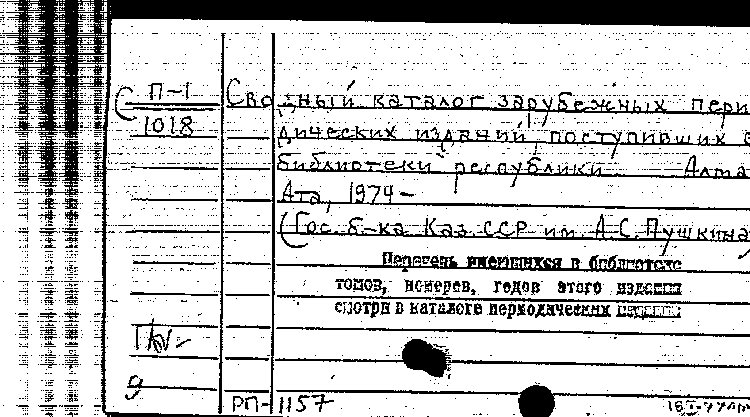 П-1 Сводный каталог зарубежных пери
1018 дических изданий, поступивших в
библиотеки республики Алма
Ата, 1974 -
(Гос. б-ка Каз ССР им. А.С. Пушкина)
Перечень имеющихся в библиотеке
томов, номеров, годов этого издания
смотри в каталоге периодических изданий
9
РП-1157